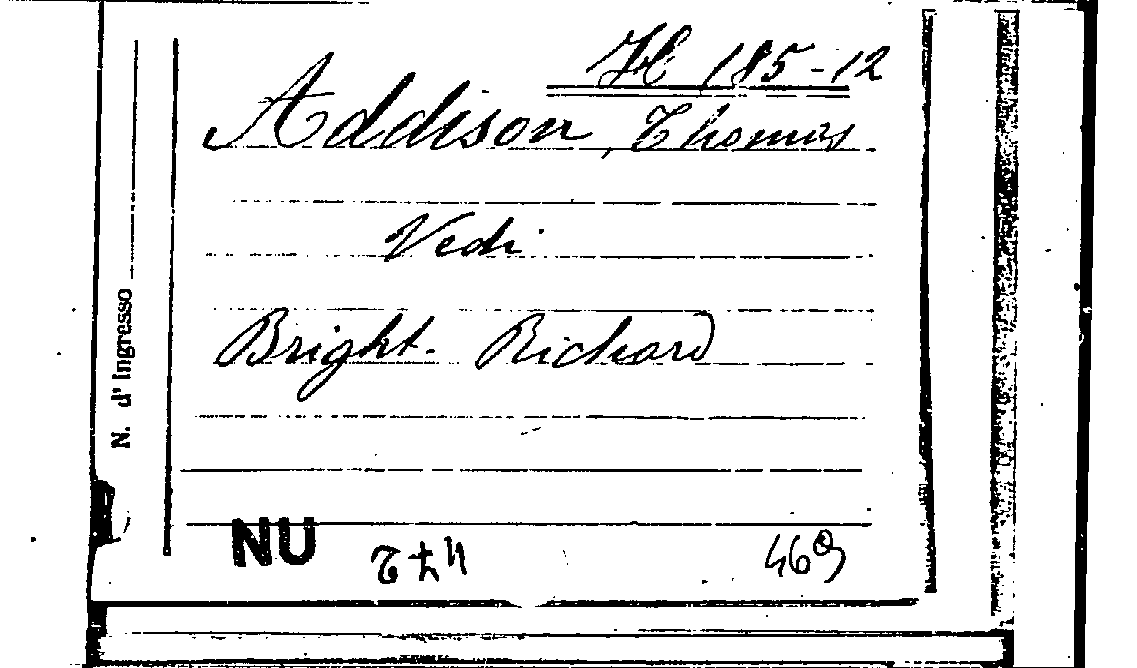 H 185-12
Addison, Thomas.
Vedi
Bright. Richard
N. d' Ingresso
NU
469